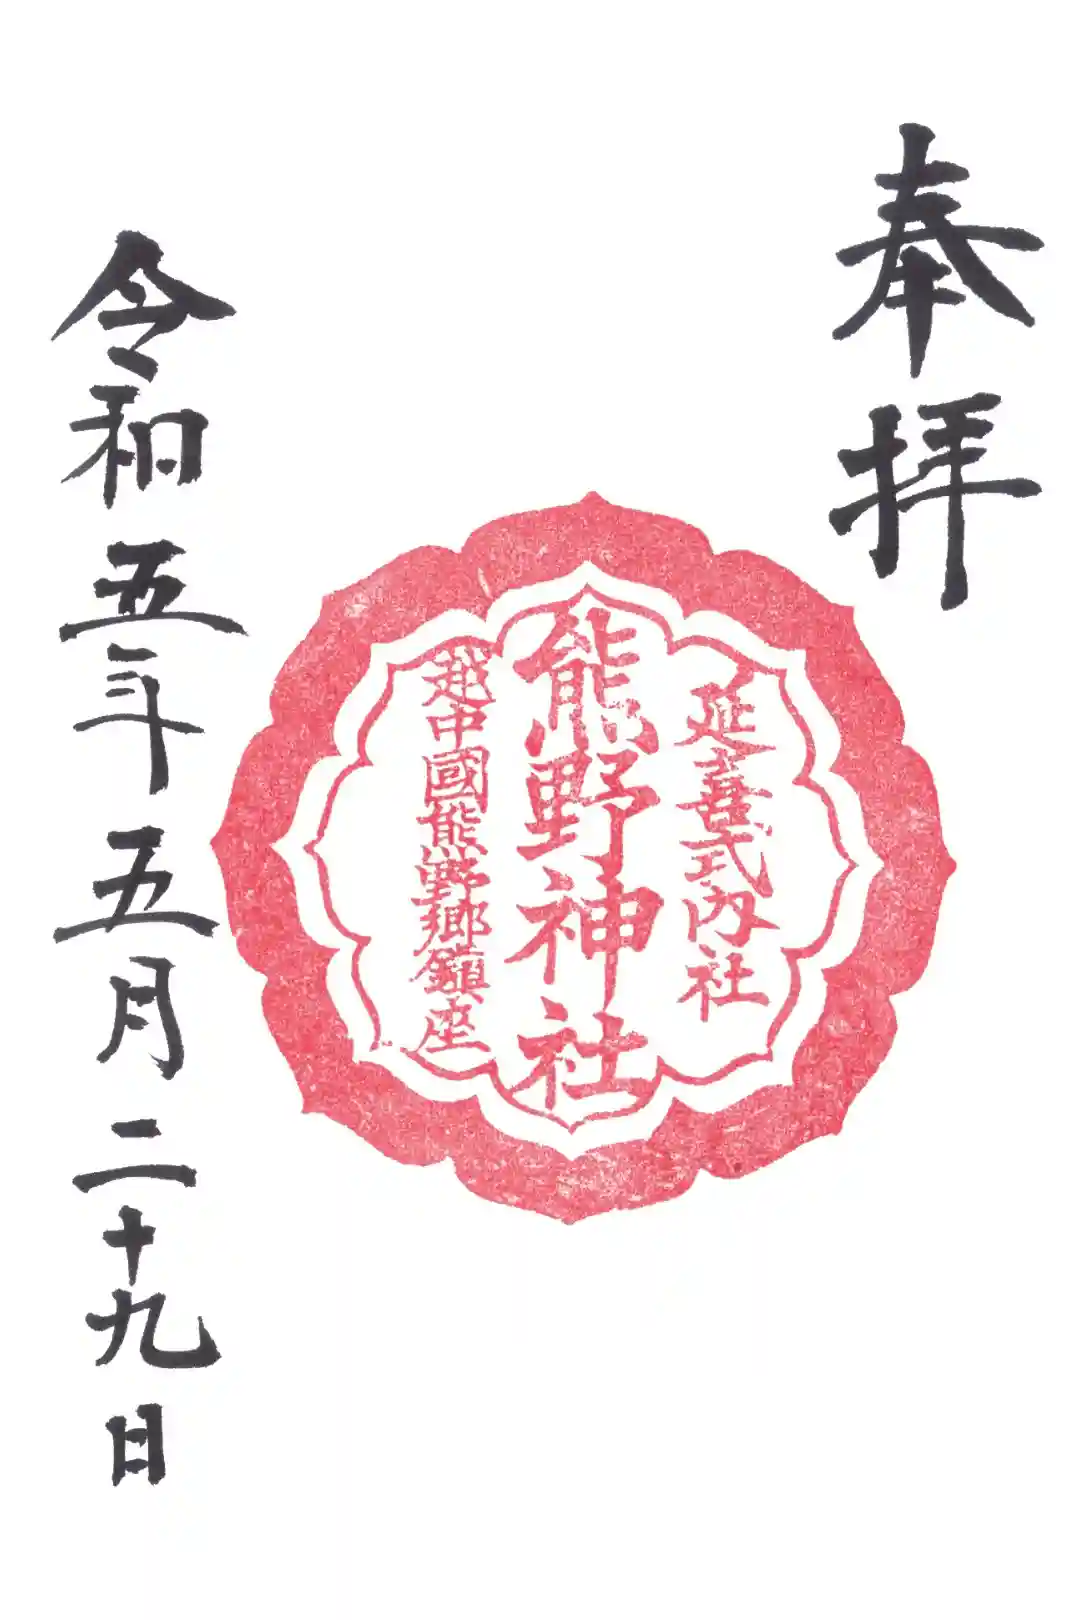 奉拝
延喜式内社
熊野神社
越中國熊野郷鎮座
令和五年五月二十九日